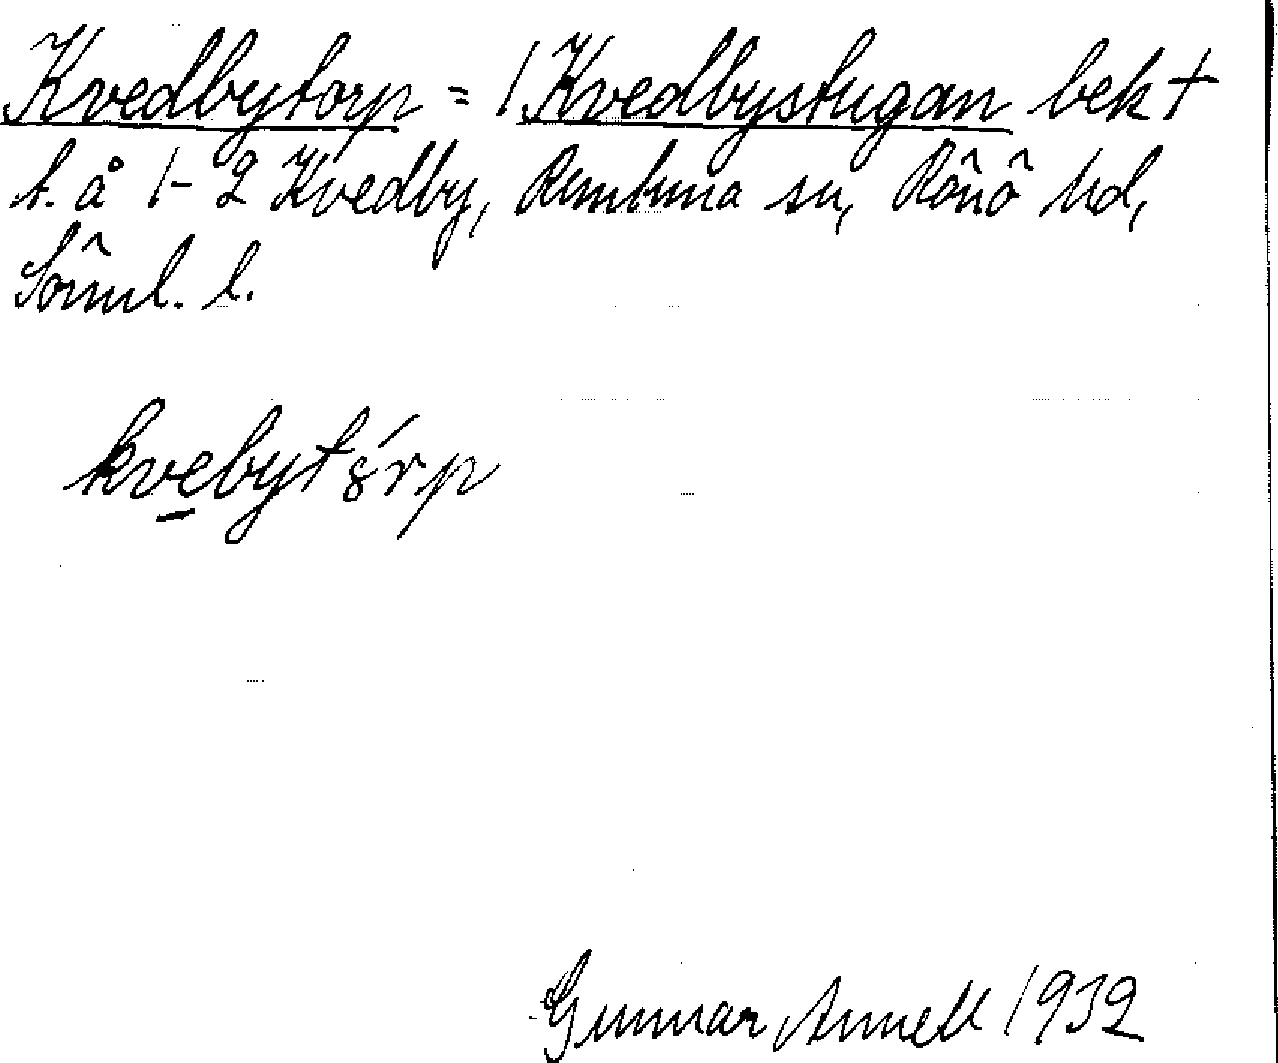 Kvedbytorp = 1 Kvedbystugan bek †
t. å 1-2 Kvedby, Rumtuna sn, Rönö hd,
Sörml. l.
kvebyt rp
Gunnar Annell 1932